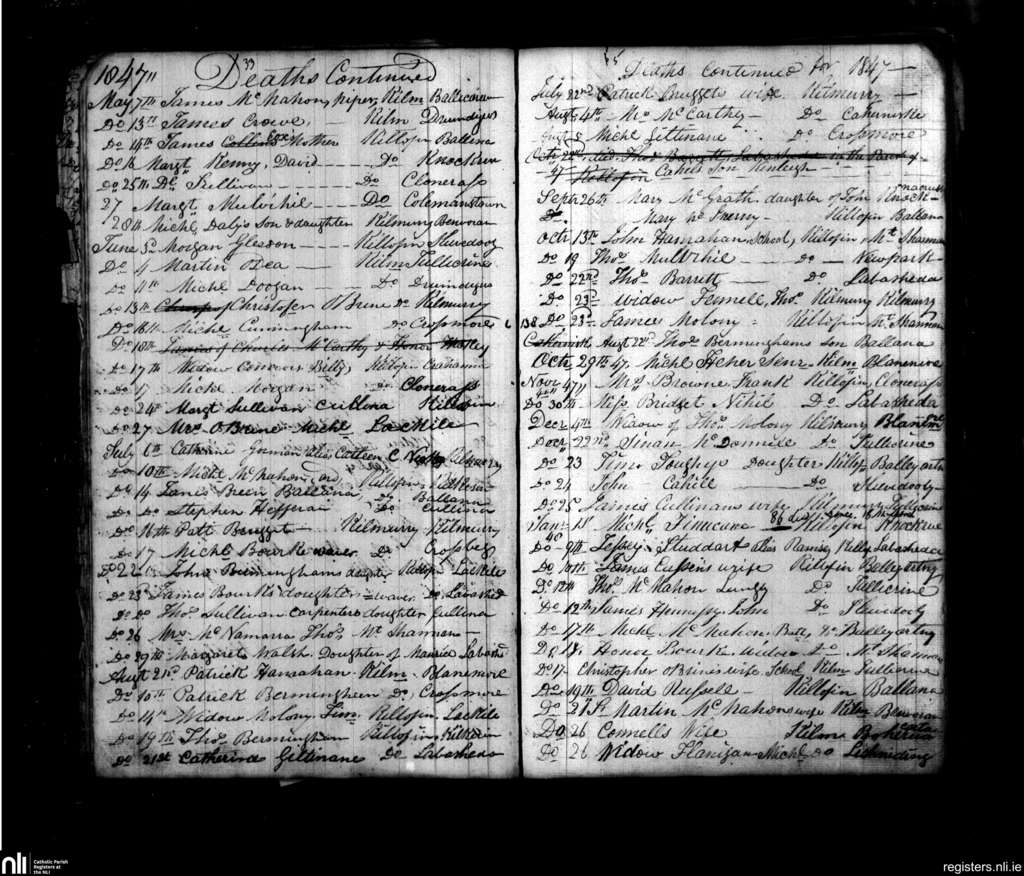 1847 "
33
Deaths Continued
May 7th James McMahon, piper, Kilm Ballicrine
Do 13th James Crowe, - - Kilm Drumdigus
Do 14th James Collins Mother Killofin Ballina
Do 16 Margt Kenny, David - - Do Knockrue
Do 25th Do Sullivan - - - Do Clonerass
27 Margt Mulvihil - - Do Colemanstown
28th Michl Daly's son & daughter Kilmurry Benvoran
June 5 Morgan Gleeson - - - Killofin Slievedooly
Do 4 Martin O Dea - Kilm Tullicrine
Do 11th Michl Doogan - Do Drumdigus
Do 13th Christofer O'Brine Do Kilmurry
Do 16th Michl Cunningham Do Crossmore
Do 18th James of Charles McCarthy & Honor
Do 17th Widow Connors Billy, Killofin
Do 17 Michl Hogan - Do Clonerass
Do 24th Margt Sullivan Cullina Killofin
Do 27 Mrs O'Brine Michl Lackile
July 6th Catherine Gorman alias Cotteen
Do 10th Michl McMahon, Killofin
Do 14 James Breen Ballina, Do Ballana
Do Do Stephen Hefferan Do Cullina
Do 16th Patt Brugget - Kilmurry Kilmurry
Do 17 Michl Bourke waver Do Crossbeg
Do 22 John Berminghams daughter Killofin Lackile
Do 23 James Bourks daughter - waver Do Labashid
Do Do Thos Sullivan carpenters daughter Cullina
Do 26 Mrs McNamarra Thos, Mt Shannon -
Do 29th Margaret Walsh Daughter of Maurice Labashid
Augt 2nd Patrick Hanrahan - Kilm - Blanemore
Do 10th Patrick Berminghem Do, Crossmore
Do 14th Widow Molony Tim, Killofin Lackile
Do 19th Thos Bermingham Killofin
Do 21st Catherine Giltinane Do Labasheda
Deaths Continued for 1847 -
July 22nd Patrick Bruggets wife Kilmurry -
Augt 4th Mrs McCarthy - Do Caherurske
Augt 5 Michl Giltinane Do Crossmore
Octr 22nd died Thos Barrett Labasheda in the Parish of
47 Killofin Cahils Son Kinleigh -
Septr 26th Mary McGrath daughter of John Knock-
Do. Mary Sherry - Killofin Ballana
Octr 13th John Hanrahan School, Killofin, Mt Shannon
Do 19 Thos Mulvihil - do - Newpark -
Do 22nd Thos Barrett - Do Labasheda
Do 23rd Widow Fennell, Thos, Kilmurry Kilmurry
138 Do 23rd James Molony - Killofin Mt Shannon
Augt 22nd Thos Berminghams son Ballana
Octr 29th 47 Michl Haher Senr - Kilm Blanemore
Novr 47" Mrs Browne, Frank Killofin, Clonerass
Do 30th Miss Bridget Nihil Do Labasheda
Decr 4th Widow of Thos Molony Kilmurry Blanmore
Decr 22nd Sinan McDonnell do Tullicrine
Do 23 Timo Toughys Daughter Killofin Balleyartny
Do 24 John Cahill - Do Slievedooly
Do 25 James Cullinans wife Kilmurry Tullicrine
Jany 1st Michl Finucane 86 Killofin Knockrue
Do - 9th Jessey Studdart alias Ramsey Kelly Labasheda
Do 10th James Cussens wife Killofin Balleyartny
Do 12th Thos McMahon Lungy Do Tullicrine
Do 12th James Hennessy, John Do Slievdooly
Do 17th Michl McMahon, Batt, Do Balleyartny
Do 18 Honor Bourk Widow do Mt Shannon
Do 17 Christopher O'Brines wife School Kilm Tullicrine
Do 19th David Russell - Killofin Ballana
Do 21st Martin McMahons wife Kilm Benvoran
Do 26 Connells Wife Kilm
Do 26 Widow Flanigan Michl do
nli
Catholic Parish
Registers at
the NLI
registers.nli.ie